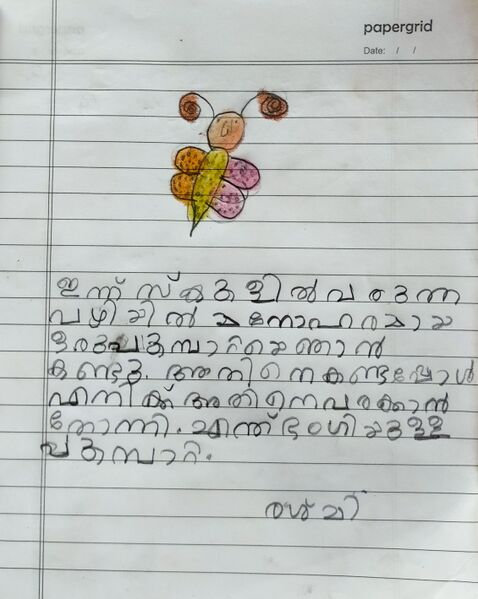 papergrid
Date: / /
ഇന്ന് സ്കുളിൽ വരുന്ന
വഴിയിൽ മനോഹരമായ
ഒരു പുമ്പാറ്റയെ ഞാൻ
കണ്ടു. അതിനെ കണ്ടപ്പോൾ
എനിക്ക് അതിനെ വരക്കാൻ
തോന്നി. എന്ത് ഭംഗിയുള്ള
പുമ്പാറ്റ.